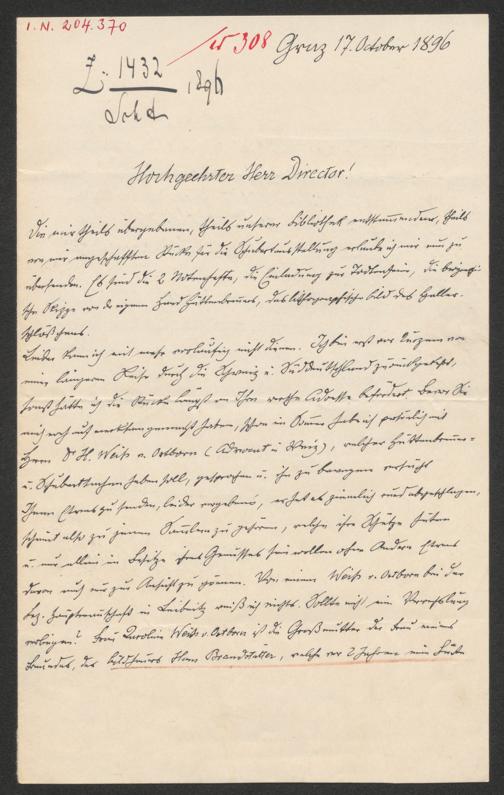 I. N. 204.370
W 308 Graz 17. October 1896
Z. 1432 1896
Hochgeehrter Herr Director!
Die mir theils übergebenen, theils unserer Bibliothek entstammenden, theils
von mir angeschafften Stücke für die Schubertausstellung erlaube ich mir nun zu
übersenden. Es sind die 2 Notenhefte, die Einladung zur Todtenfeier, die biographi-
sche Skizze von der eigenen Hand Hüttenbrenners, das lithographische Bild des Haller-
schlößchens.
Leider kann ich mit mehr vorläufig nicht dienen. Ich bin erst vor Kurzem von
einer längeren Reise durch die Schweiz u. Süddeutschland zurückgekehrt,
sonst hätte ich die Stücke längst an Ihre werthe Adresse befördert. Bevor Sie
mich noch aufmerksam gemacht haben, schon im Sommer habe ich persönlich mit
Herrn Dr H. Weis v. Ostborn (Advocat in Graz), welcher Hüttenbrenner-
u. Schubertsachen haben soll, gesprochen u. ihn zu bewegen versucht
Ihnen Etwas zu senden, leider vergebens, er hat es ziemlich rund abgeschlagen,
scheint also zu jenen Sammlern zu gehören, welche ihre Schätze hüten
u. nur allein im Besitze ihres Genusses sein wollen ohne Andern Etwas
davon auch nur zur Ansicht zu gönnen. Von einem Weis v. Ostborn bei der
Bez. Hauptmannschaft in Leibnitz weiß ich nichts. Sollte nicht ein Verwechslung
vorliegen? Frau Karoline Weis v. Ostborn ist die Großmutter der Frau meines
Freundes, des Bildhauers Hans Brandstetter, welche vor 2 Jahren eine Büste